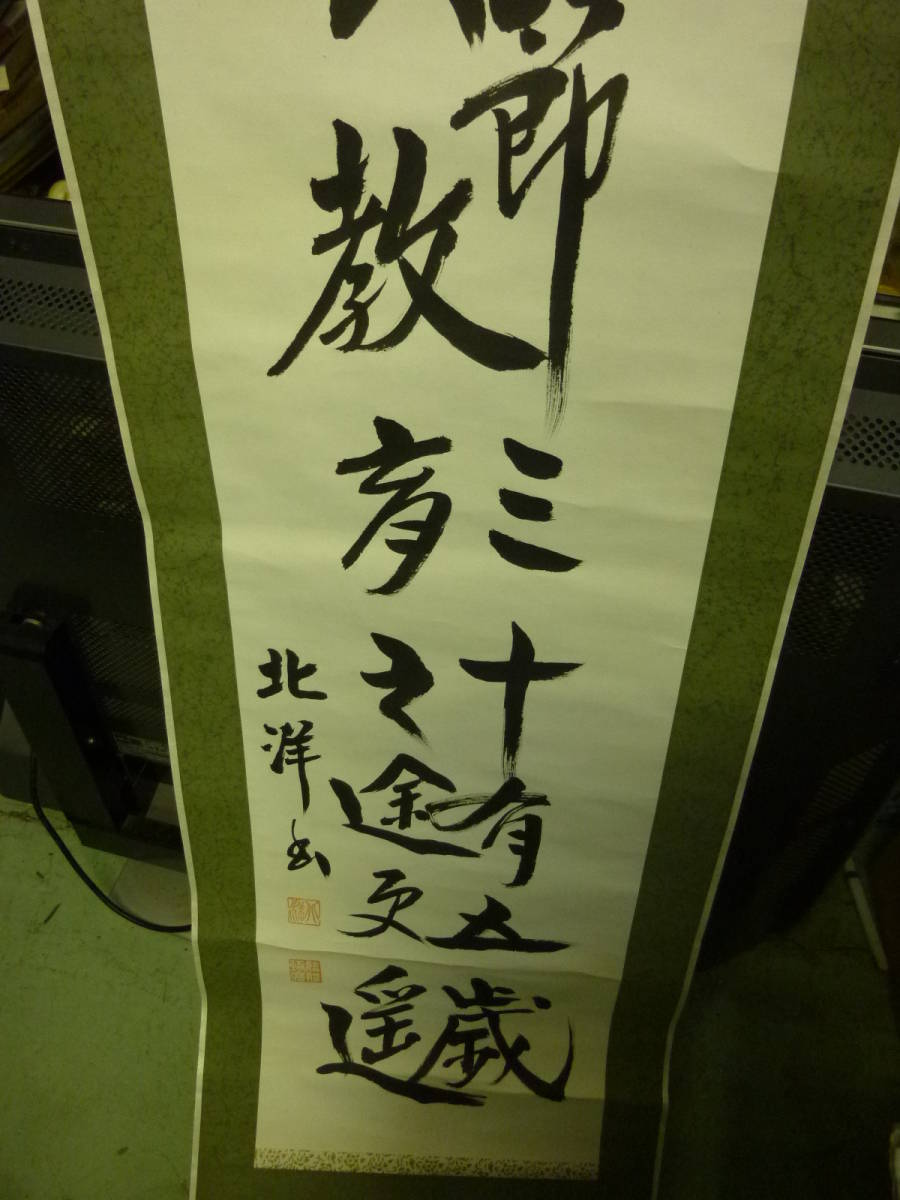 三十有五歳
教育之途更遥
北洋書